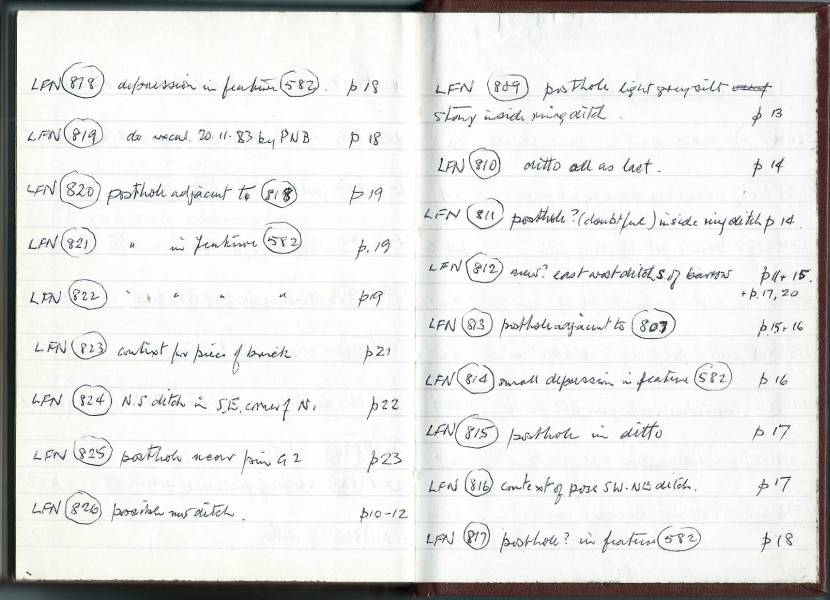 LFN 818 depression in feature 582. p 18
LFN 819 do excav. 20.11.83 by PNB p 18
LFN 820 posthole adjacent to 818 p 19
LFN 821 " in feature 582 p.19
LFN 822 " " " " p19
LFN 823 context for piece of brick p21
LFN 824 N.S ditch in S.E. corner of N. p22
LFN 825 posthole near G2 p23
LFN 826 possible ditch. p10-12
LFN 809 posthole light grey silt
stony inside ring ditch. p 13
LFN 810 ditto all as last. p 14
LFN 811 posthole? (doubtful) inside ring ditch p 14.
LFN 812 new? east west ditch S of barrow p11+15.
+p.17,20
LFN 813 posthole adjacent to 807 p.15+16
LFN 814 small depression in feature 582 p 16
LFN 815 posthole in ditto p 17
LFN 816 context of poss SW-NE ditch. p 17
LFN 817 posthole? in feature 582 p 18